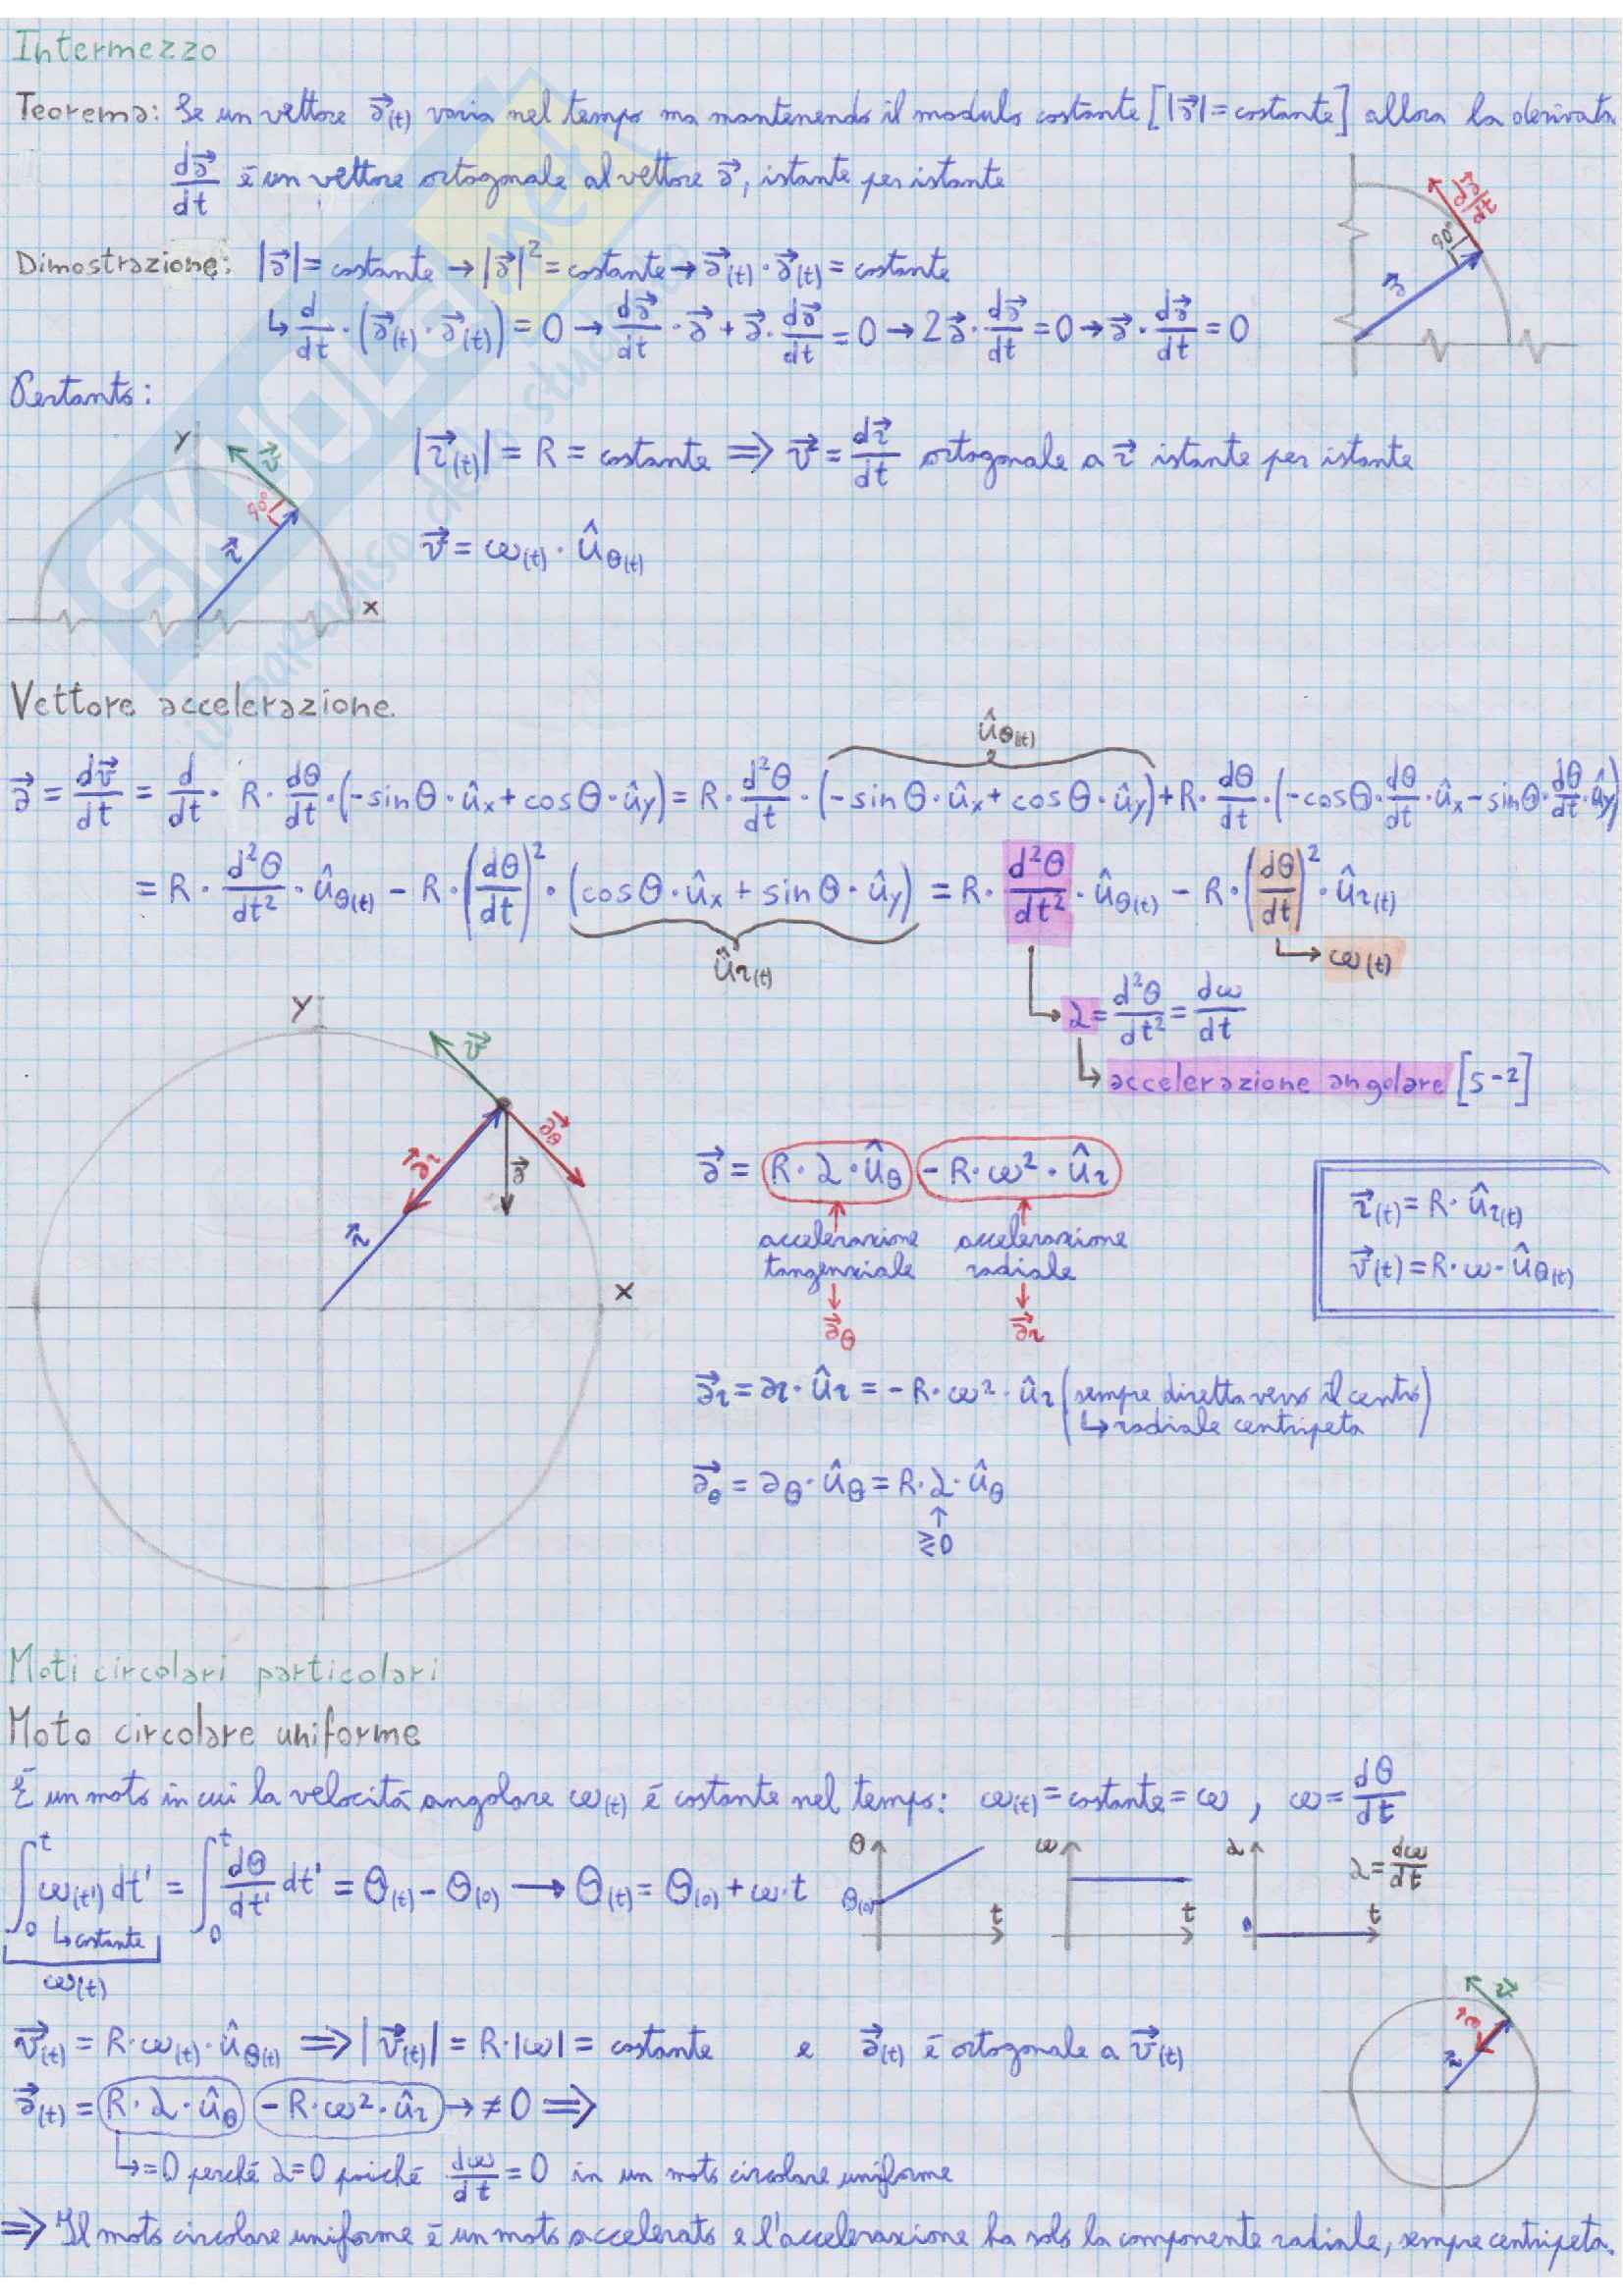 Intermezzo
Teorema: Se un vettore a⃗(t) varia nel tempo ma mantenendo il modulo costante [|a⃗|=costante] allora la derivata
da⃗/dt è un vettore ortogonale al vettore a⃗, istante per istante
da⃗/dt
90°
a⃗
Dimostrazione: |a⃗|= costante → |a⃗|²=costante → a⃗(t)·a⃗(t)= costante
↳ d/dt·(a⃗(t)·a⃗(t))=0 → da⃗/dt·a⃗+a⃗·da⃗/dt=0 → 2a⃗·da⃗/dt=0 → a⃗·da⃗/dt=0
Pertanto:
y
v⃗
90°
r⃗
x
|r⃗(t)|= R = costante ⟹ v⃗=dr⃗/dt ortogonale a r⃗ istante per istante
v⃗=ω(t)·ûθ(t)
SKUOLA.net
Vettore accelerazione
ûθ(t)
a⃗ = dv⃗/dt = d/dt · R·dθ/dt·(-sinθ·ûx+cosθ·ûy)=R·d²θ/dt·(-sinθ·ûx+cosθ·ûy)+R·dθ/dt·(-cosθ·dθ/dt·ûx-sinθ·dθ/dt·ûy)
=R·d²θ/dt²·ûθ(t)-R·(dθ/dt)²·(cosθ·ûx+sinθ·ûy)=R·d²θ/dt²·ûθ(t)-R·(dθ/dt)²·ûr(t)
ûr(t)
↳ω(t)
↳α=d²θ/dt²=dω/dt
↳accelerazione angolare [s-2]
y
v⃗
a⃗θ
a⃗r
a⃗
r⃗
x
a⃗ = R·α·ûθ -R·ω²·ûr
accelerazione tangenziale
accelerazione radiale
a⃗θ
a⃗r
r⃗(t)=R·ûr(t)
v⃗(t)=R·ω·ûθ(t)
a⃗r=ar·ûr=-R·ω²·ûr (sempre diretta verso il centro)
↳radiale centripeta
a⃗θ=aθ·ûθ=R·α·ûθ
↑
⋛0
Moti circolari particolari
Moto circolare uniforme
È un moto in cui la velocità angolare ω(t) è costante nel tempo: ω(t)=costante=ω , ω=dθ/dt
∫₀ᵗ ω(t')dt' = ∫₀ᵗ dθ/dt' dt' = θ(t)-θ(0) → θ(t)=θ(0)+ω·t
↳costante
ω(t)
θ
θ(0)
t
ω
t
α
0
t
α=dω/dt
v⃗(t)=R·ω(t)·ûθ(t) ⟹ |v⃗(t)|=R·|ω|= costante e a⃗(t) è ortogonale a v⃗(t)
v⃗
a⃗
r⃗
a⃗(t)= R·α·ûθ -R·ω²·ûr → ≠0 ⟹
↳=0 perché α=0 poiché dω/dt=0 in un moto circolare uniforme
⟹ Il moto circolare uniforme è un moto accelerato e l'accelerazione ha solo la componente radiale, sempre centripeta.